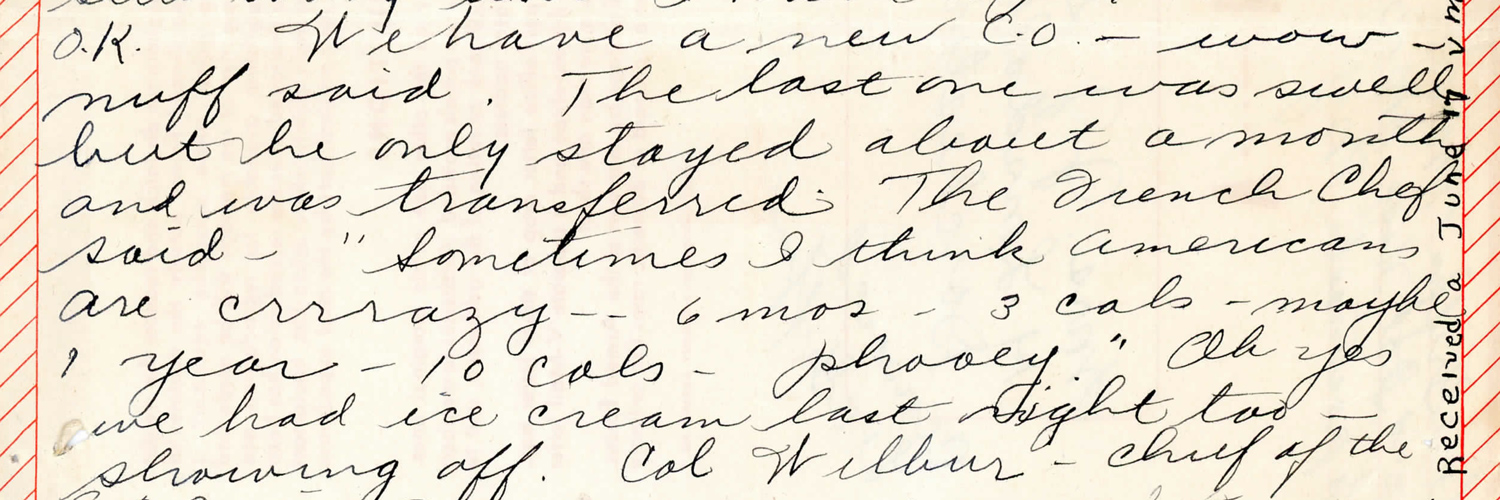 O.K. We have a new C.O. - wow -
nuff said. The last one was swell
but he only stayed about a month
and was transferred. The French Chef
said - "Sometimes I think Americans
are crrrazy -- 6 mos - 3 cols - maybe
1 year - 10 cols - phooey" Oh yes
we had ice cream last night too -
showing off. Col Wilbur - chief of the
Received a June 17 v m